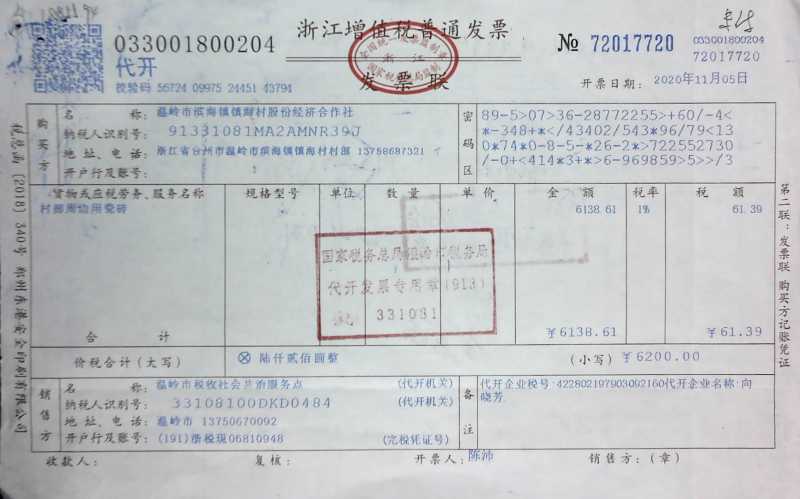 浙江增值税普通发票
033001800204
代开
校验码 56724 09975 24451 43794
全国统一发票监制章
浙江
国家税务总局监制
发票联
№ 72017720
033001800204
72017720
开票日期: 2020年11月05日
税总函〔2018〕340号 郑州东港安全印刷有限公司
购买方
名称: 温岭市滨海镇镇海村股份经济合作社
纳税人识别号: 91331081MA2AMNR39J
地址、电话: 浙江省台州市温岭市滨海镇镇海村村部 13758687321
开户行及账号:
密码区
89-5>07>36-28772255>+60/-4<
*-348+*</43402/543*96/79<13
0*74*0-8-5-*26-2*>722552730
/-0+<414*3+*>6-969859>5>>/3
货物或应税劳务、服务名称 规格型号 单位 数量 单价 金额 税率 税额
村部周边用瓷砖 6138.61 1% 61.39
国家税务总局温岭市税务局
代开发票专用章(913)
331081
合计 ￥6138.61 ￥61.39
价税合计(大写) ⊗ 陆仟贰佰圆整 (小写) ￥6200.00
销售方
名称: 温岭市税收社会共治服务点 (代开机关)
纳税人识别号: 33108100DKD0484 (代开机关)
地址、电话: 温岭市 13750670092
开户行及账号: (191)浙税现06810948 (完税凭证号)
备注
代开企业税号:422802197903092160代开企业名称:向
晓芳.
收款人: 复核: 开票人: 陈沛 销售方:(章)
第二联:发票联 购买方记账凭证